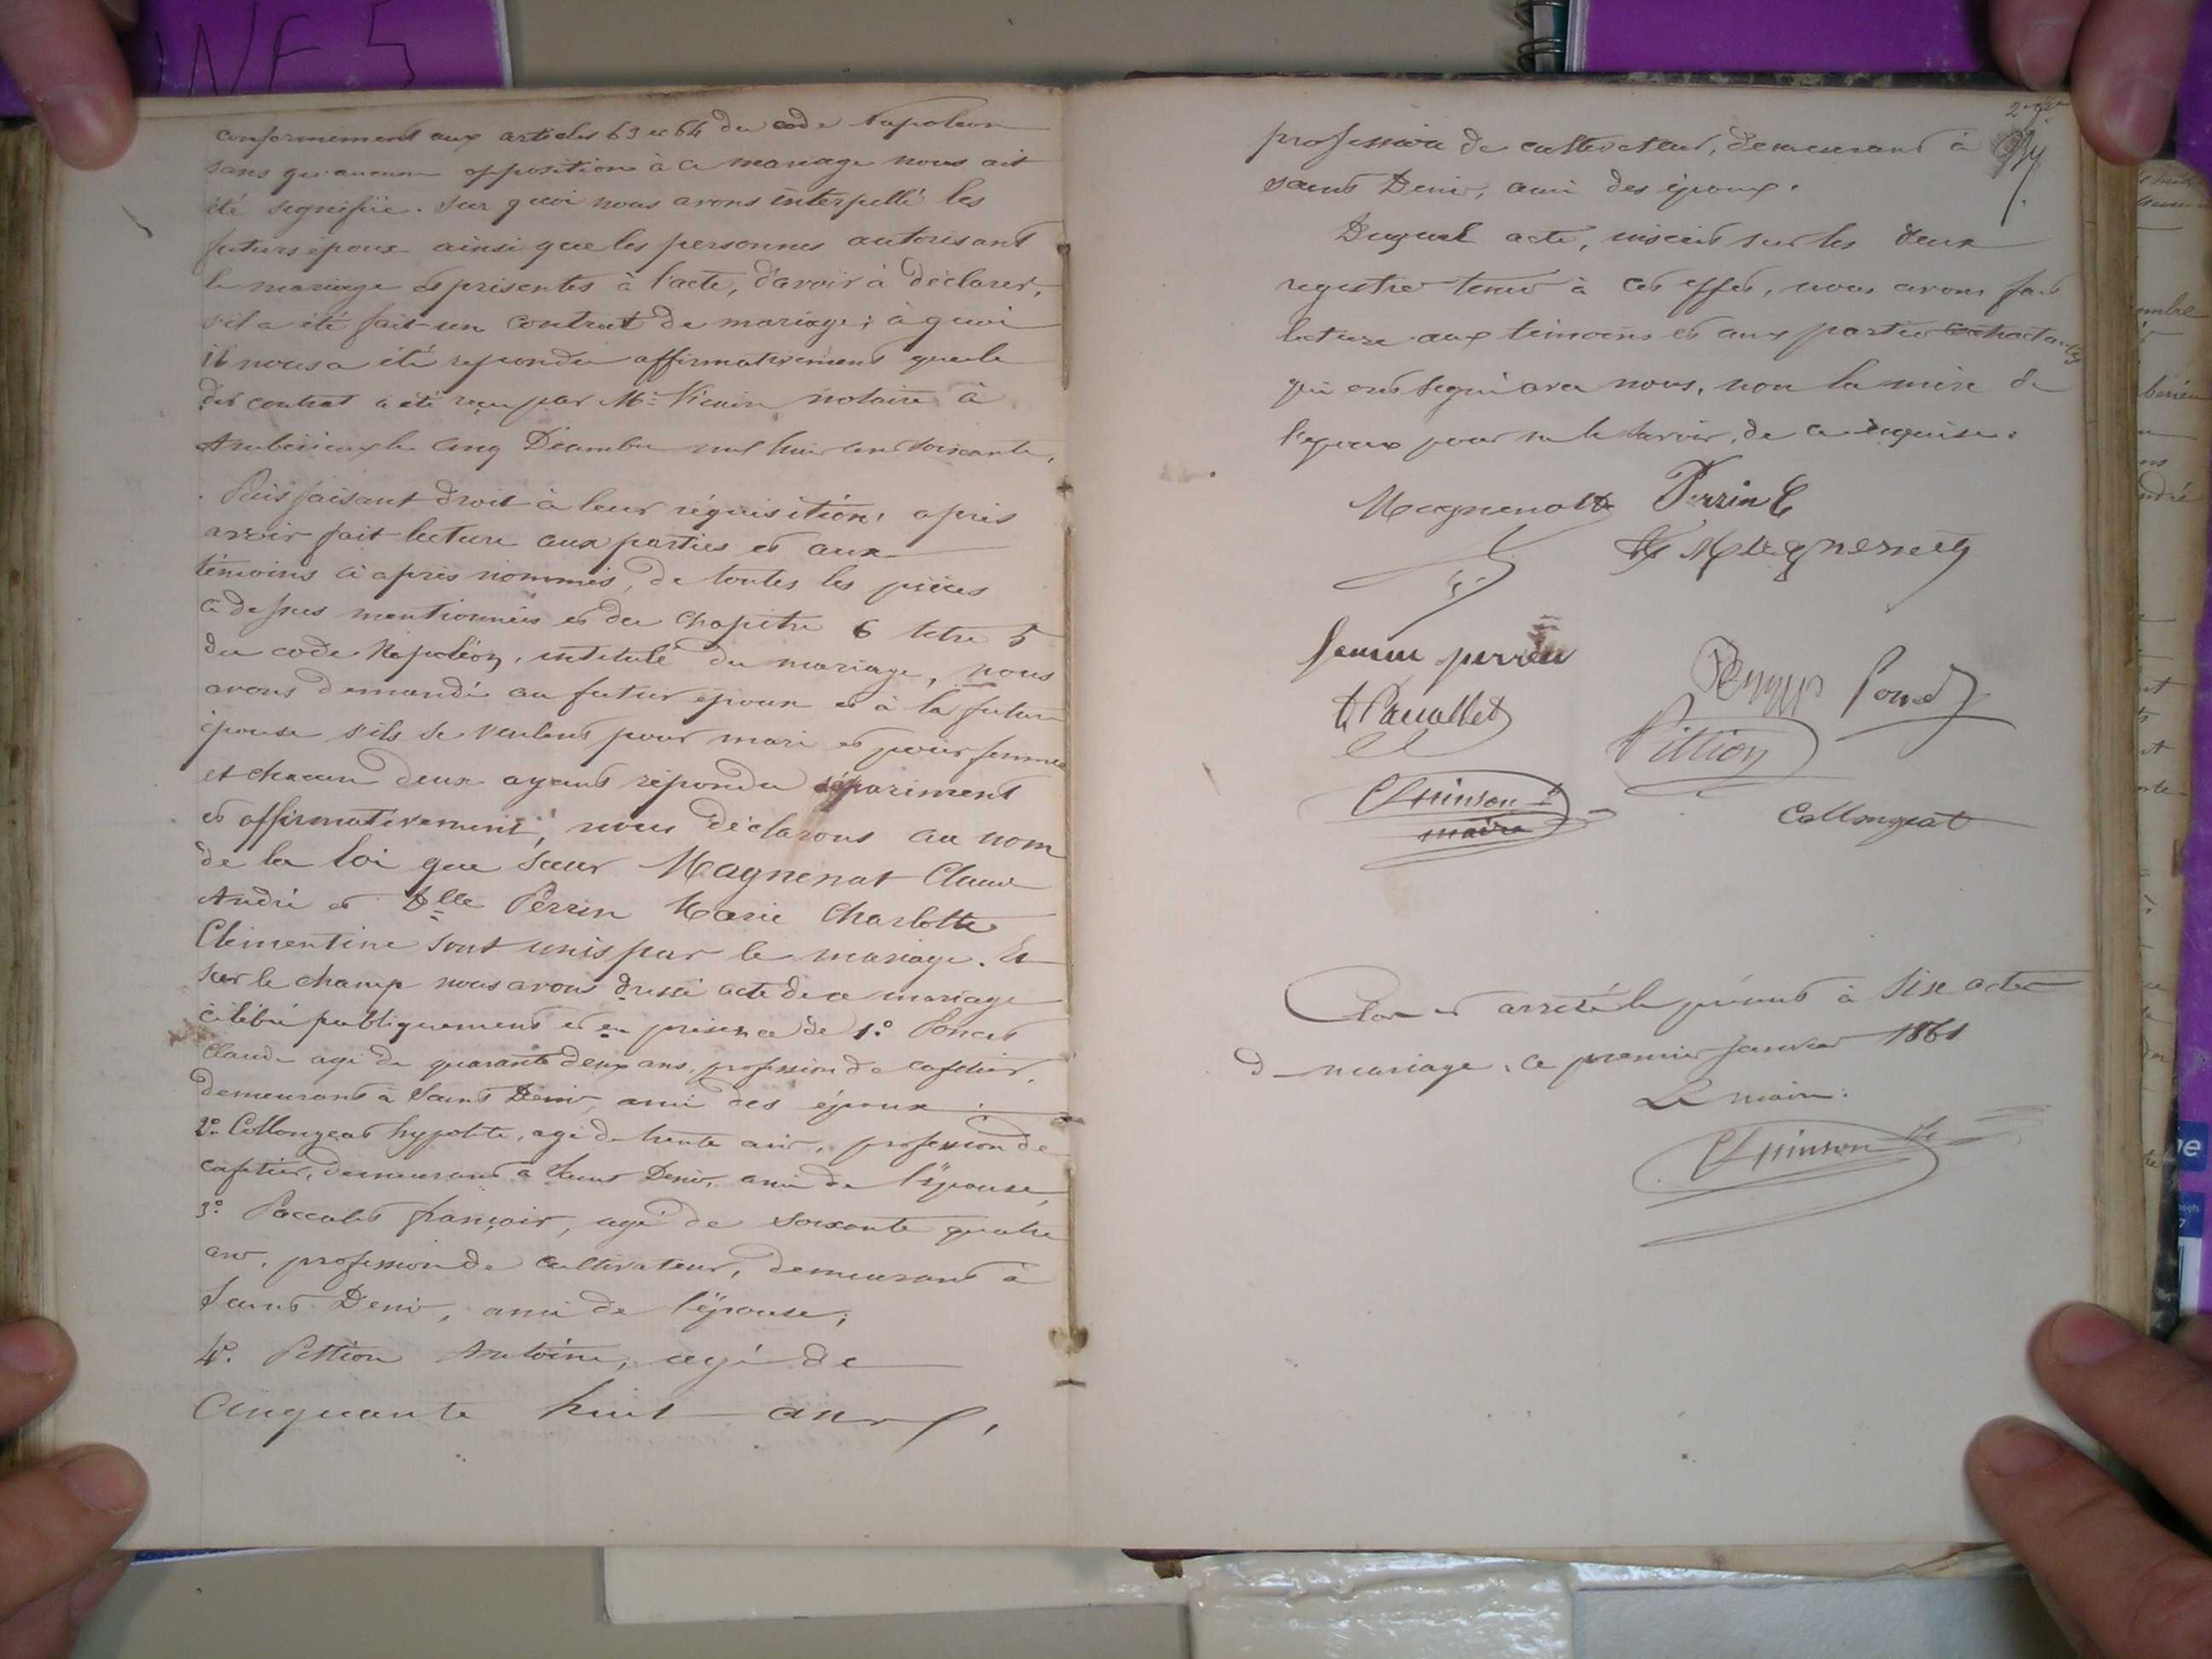 INF 5
conformément aux articles 63 et 64 du code Napoléon
sans qu'aucune opposition à ce mariage nous ait
été signifiée. Sur quoi nous avons interpellé les
futurs époux ainsi que les personnes autorisant
le mariage et présentes à l'acte, d'avoir à déclarer,
s'il a été fait un contrat de mariage; à quoi
il nous a été répondu affirmativement que le
dit contrat a été reçu par Me notaire à
Ambérieux le cinq Décembre mil huit cent soixante,
Puis faisant droit à leur réquisition, après
avoir fait lecture aux parties et aux
témoins ci après nommés, de toutes les pièces
ci dessus mentionnées et du chapitre 6 titre 5
du code Napoléon, intitulé du mariage, nous
avons demandé au futur époux et à la future
épouse s'ils se veulent pour mari et pour femme
et chacun deux ayant répondu séparément
et affirmativement, nous déclarons au nom
de la loi que sieur Magnenat Claude
André et Dlle Perrin Marie Charlotte
Clémentine sont unis par le mariage. Et
sur le champ nous avons dressé acte de ce mariage
célébré publiquement et en présence de 1º Poncet
Claude agé de quarante deux ans, profession de cafetier,
demeurant à Saint Denis, ami des époux.
2º Collongeat hypolite, agé de trente ans, profession de
cafetier, demeurant à Saint Denis, ami de l'épouse,
3º Paccalet françois, agé de soixante quatre
ans, profession de cultivateur, demeurant à
Saint Denis, ami de l'épouse;
4º. Pittion Antoine, agé de
cinquante huit ans,
profession de cultivateur, demeurant à
Saint Denis, ami des époux.
Duquel acte, inscrit sur les deux
registres tenus à cet effet, nous avons fait
lecture aux témoins et aux parties contractantes
qui ont signé avec nous, non la mère de
l'époux pour ne le savoir, de ce requise.
Magnenat Perrin C
Magnenat
perrin
Paccallet Poncet
Pittion
Chinson
maire Collongeat
Clos et arrêté le présent à Six actes
de mariage, ce premier Janvier 1861
Le maire.
Chinson